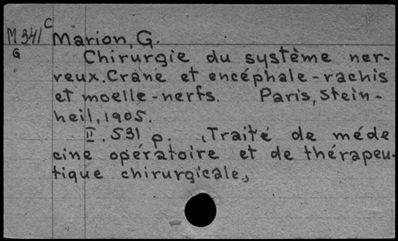 M 341 C Marion, G.
G
Chirurgie du système ner-
veux. Crane et encéphale - rachis
et moelle - nerfs. Paris, Stein-
heil, 1905.
II. 531 p. „Traité de méde
cine opératoire et de thérapeu-
tique chirurgicale„